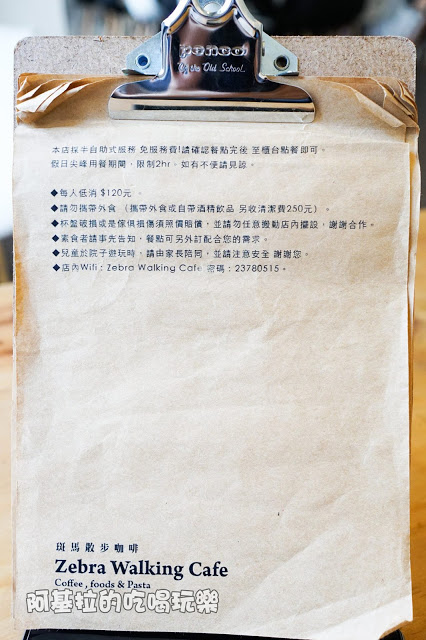 penco
By the Old School.
本店採半自助式服務 免服務費!請確認餐點完後 至櫃台點餐即可。
假日尖峰用餐期間，限制2hr，如有不便請見諒。
◆每人低消 $120元 。
◆請勿攜帶外食 （攜帶外食或自帶酒精飲品 另收清潔費250元）。
◆杯盤破損或是傢俱損傷須照價賠償，並請勿任意搬動店內擺設，謝謝合作。
◆素食者請事先告知，餐點可另外訂配合您的需求。
◆兒童於院子遊玩時，請由家長陪同，並請注意安全 謝謝您。
◆店內Wifi：Zebra Walking Cafe 密碼：23780515。
斑馬散步咖啡
Zebra Walking Cafe
Coffee , foods & Pasta
阿基拉的吃喝玩樂